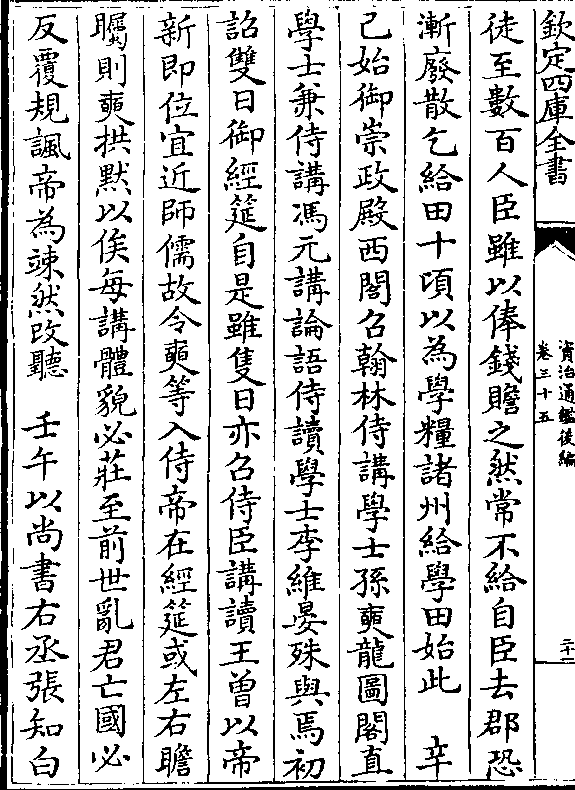 欽定四庫全書
資治通鑑後編
卷三十五
二十一
徒至數百人臣雖以俸錢贍之然常不給自臣去郡恐
漸廢散乞給田十頃以為學糧諸州給學田始此 辛
己始御崇政殿西閣召翰林侍講學士孫奭龍圖閣直
學士兼侍講馮元講論語侍讀學士李維晏殊與焉初
詔雙日御經筵自是雖隻日亦召侍臣講讀王曾以帝
新即位宜近師儒故令奭等入侍帝在經筵或左右瞻
矚則奭拱默以俟每講體貌必莊至前世亂君亡國必
反覆規諷帝為竦然改聽 壬午以尚書右丞張知白